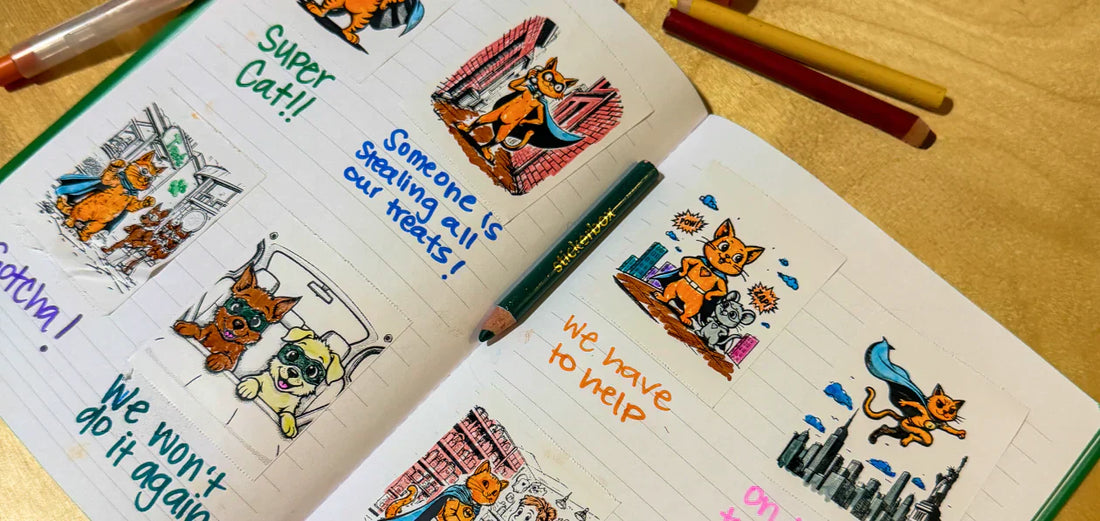 Super
Cat!!
Someone is
stealing all
our treats!
Gotcha!
We won't
do it again
stickerbox
POW!
ZAP!
We have
to help
on